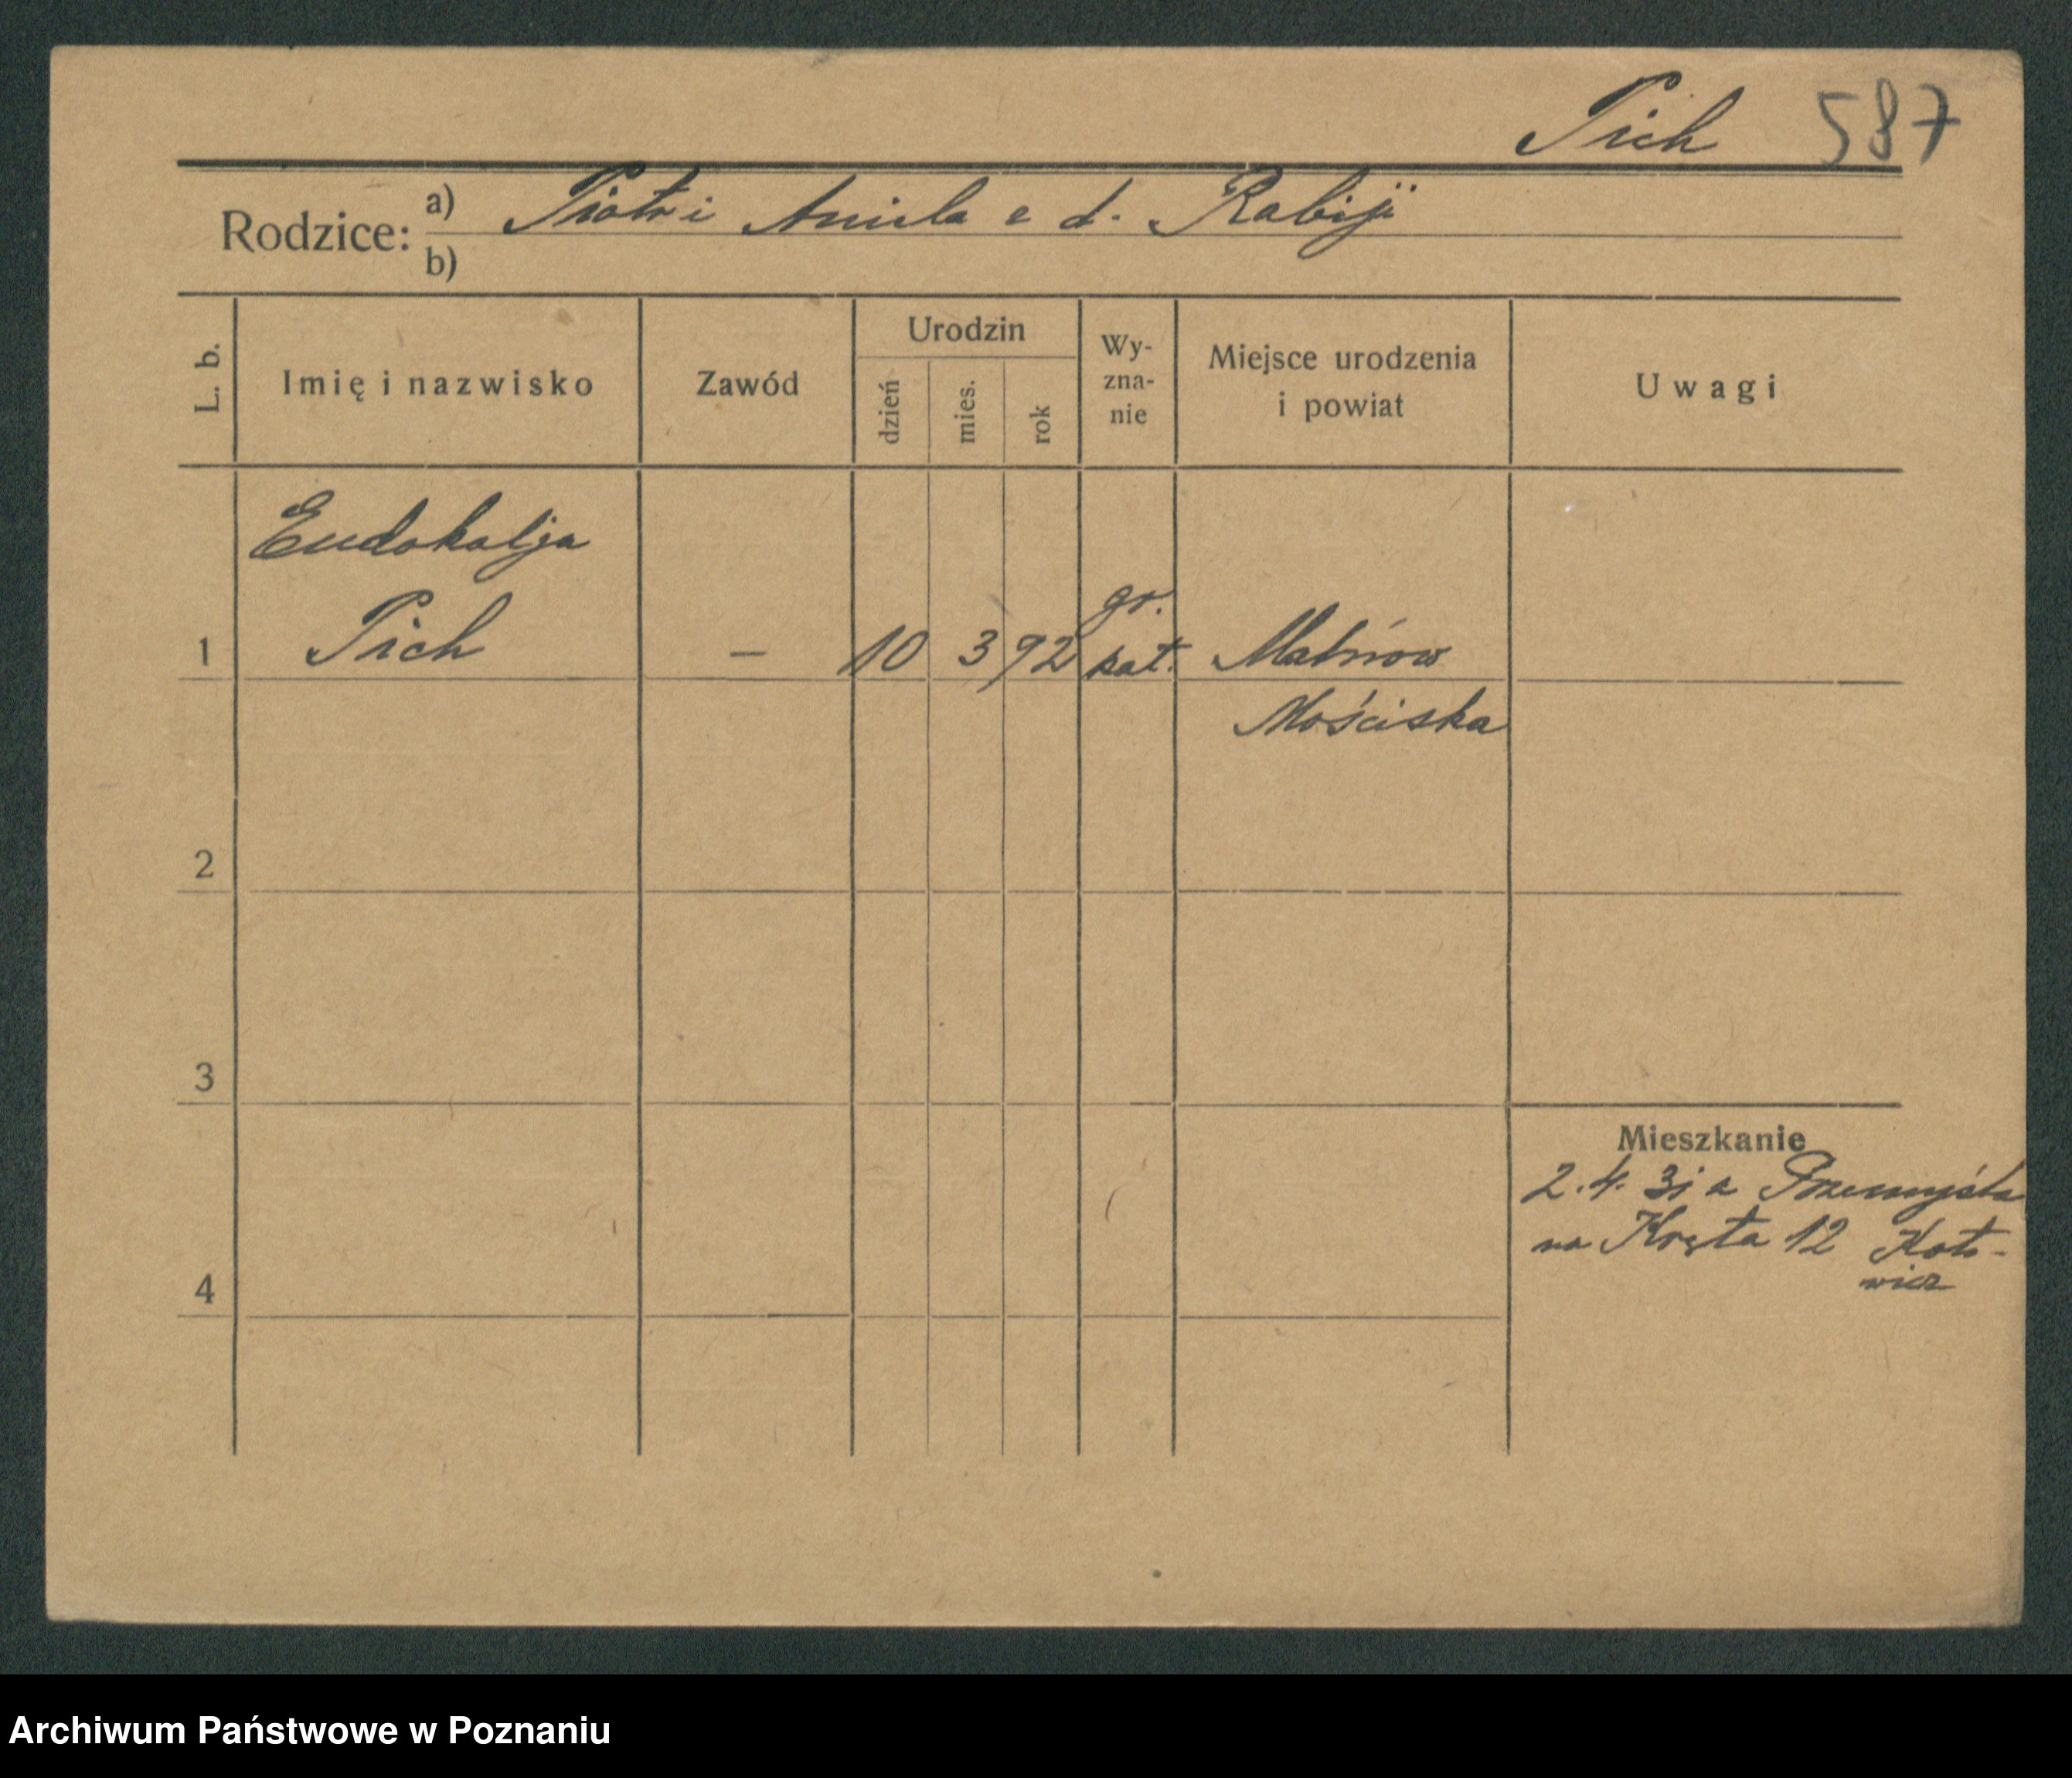 Pich 587
Rodzice: a) Piotr i Aniela e d. Rabiji
b)
L. b.
Imię i nazwisko
Zawód
Urodzin
dzień
mies.
rok
Wy-
zna-
nie
Miejsce urodzenia
i powiat
Uwagi
Eudokalja
gr.
1 Pich – 10 3 92 kat. Malnow
Mościska
2
3
Mieszkanie
2.4. 31 z Przemyśla
na Kręta 12 Koto-
wicz
4
Archiwum Państwowe w Poznaniu